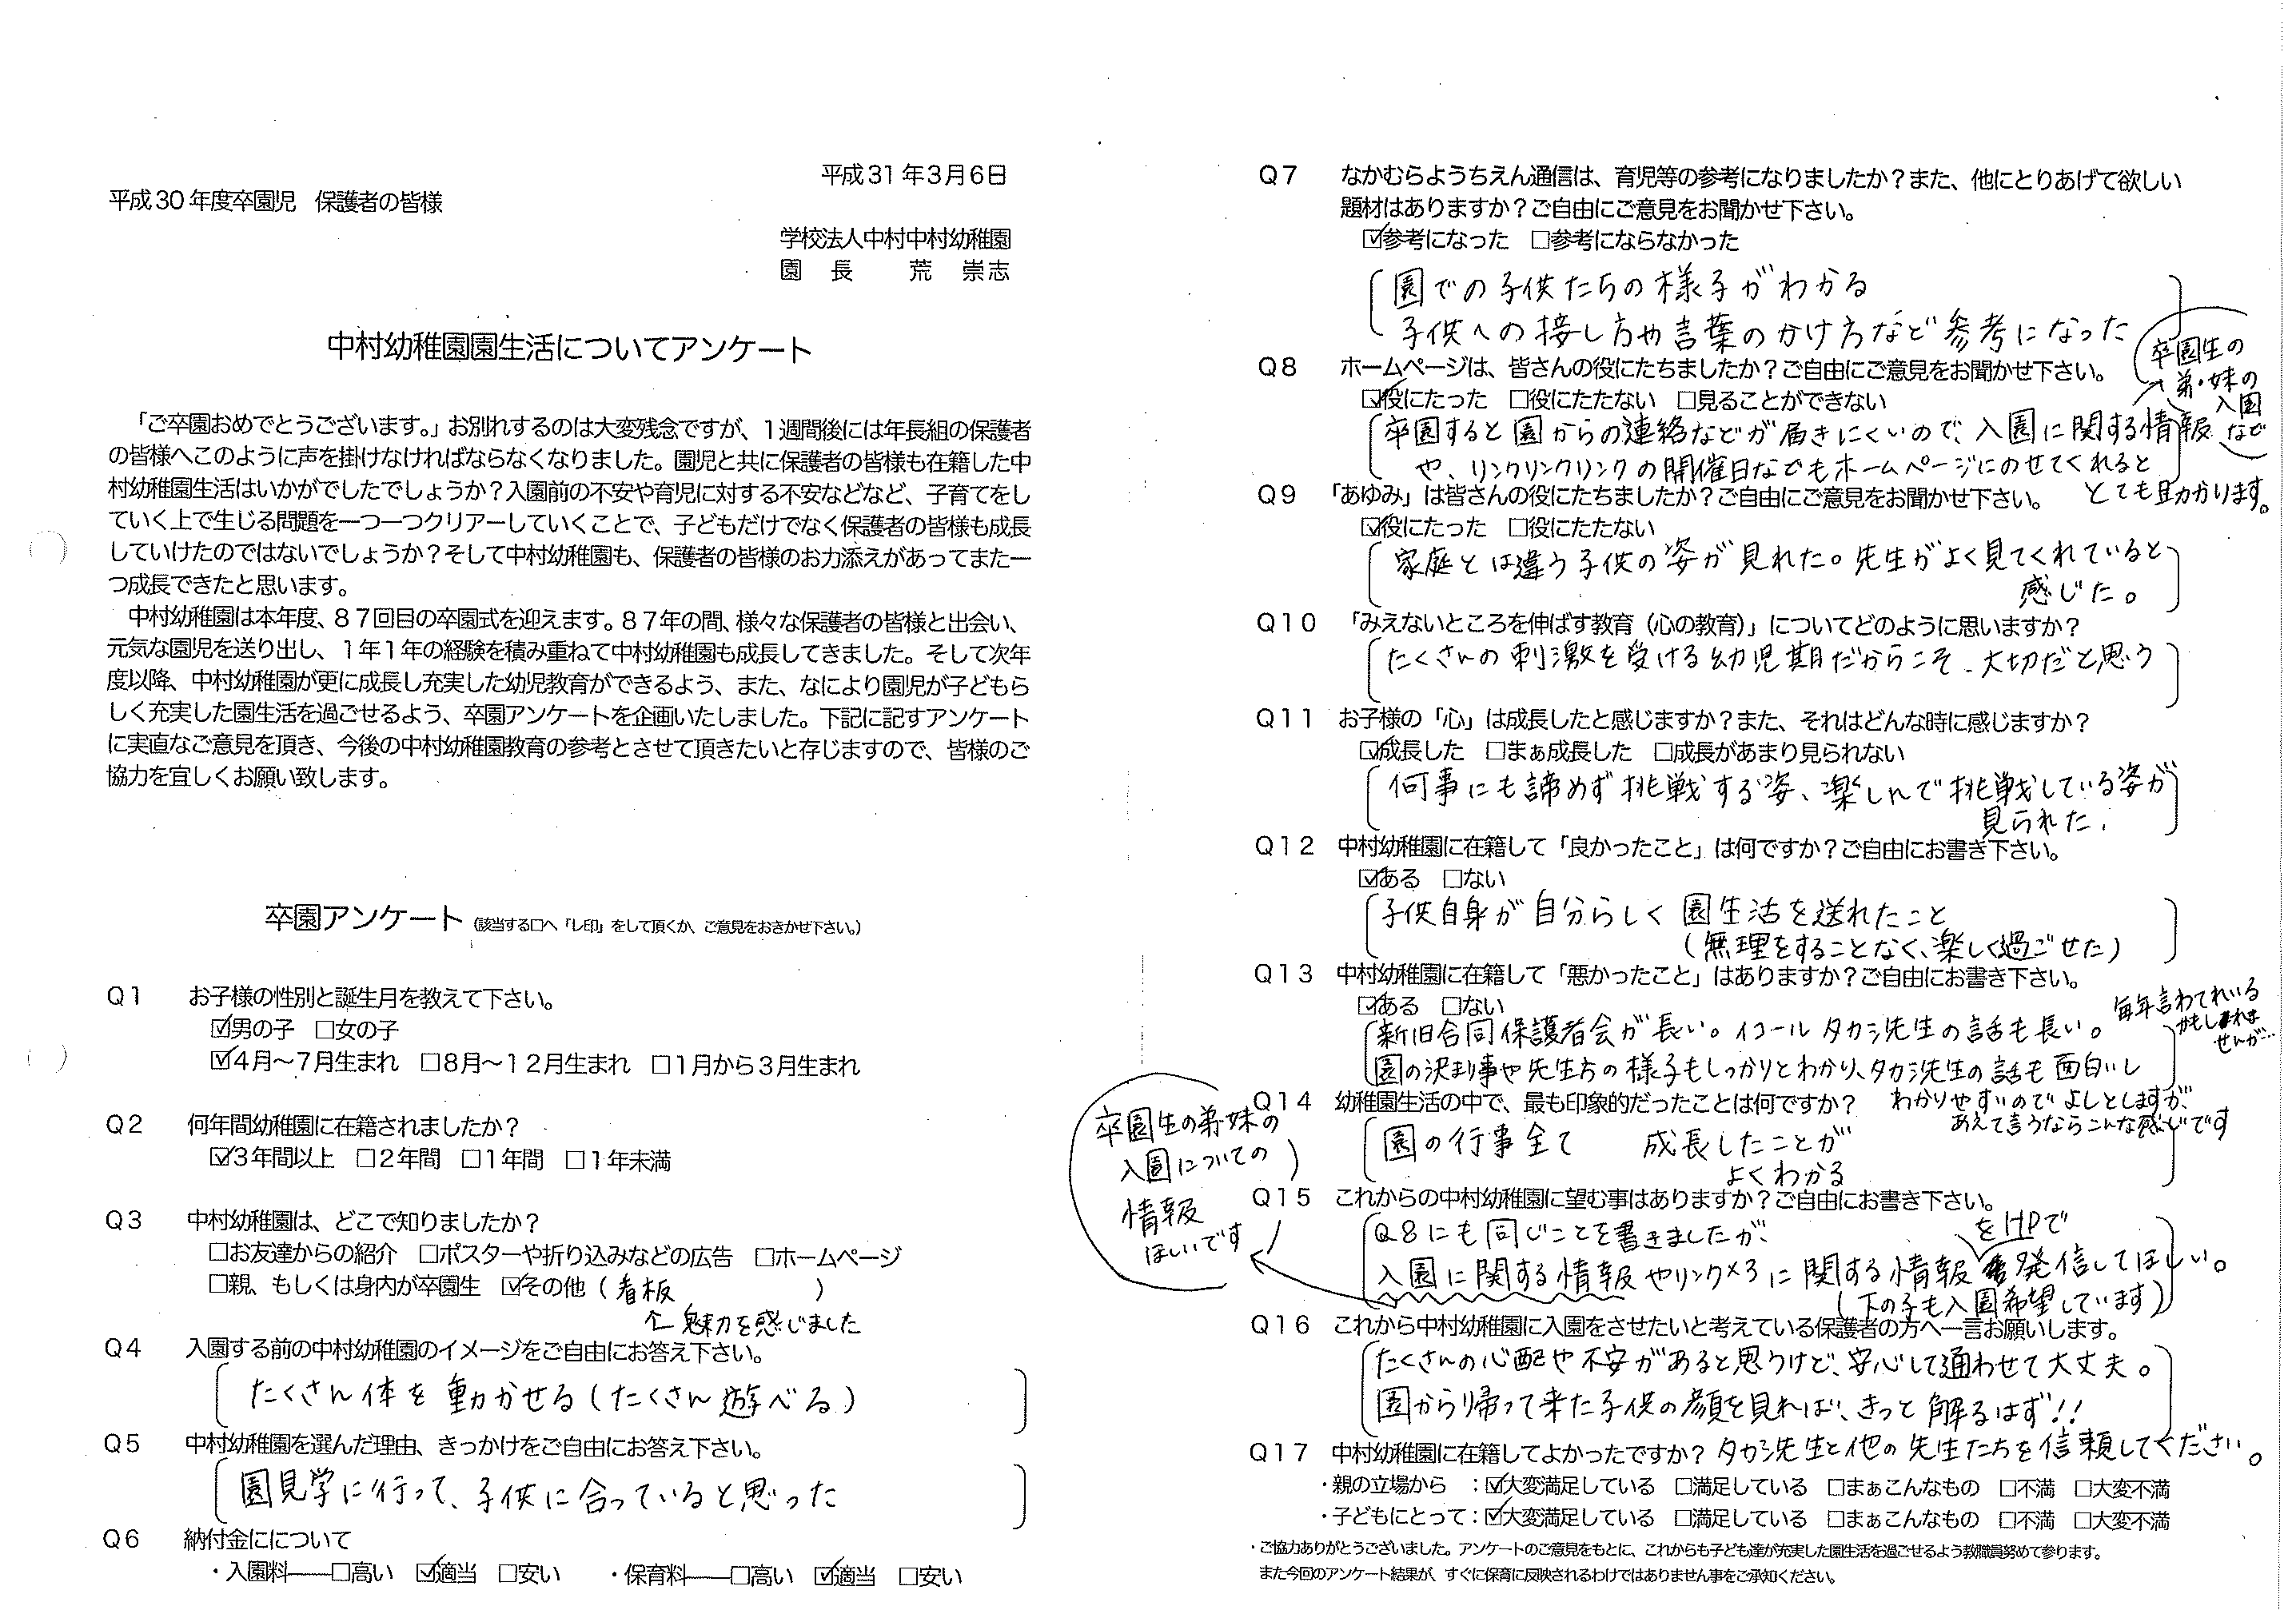 平成31年3月6日
平成30年度卒園児　保護者の皆様
学校法人中村中村幼稚園
園　長　　荒　崇志
中村幼稚園園生活についてアンケート
「ご卒園おめでとうございます。」お別れするのは大変残念ですが、1週間後には年長組の保護者
の皆様へこのように声を掛けなければならなくなりました。園児と共に保護者の皆様も在籍した中
村幼稚園生活はいかがでしたでしょうか？入園前の不安や育児に対する不安などなど、子育てをし
ていく上で生じる問題を一つ一つクリアーしていくことで、子どもだけでなく保護者の皆様も成長
していけたのではないでしょうか？そして中村幼稚園も、保護者の皆様のお力添えがあってまた一
つ成長できたと思います。
中村幼稚園は本年度、87回目の卒園式を迎えます。87年の間、様々な保護者の皆様と出会い、
元気な園児を送り出し、1年1年の経験を積み重ねて中村幼稚園も成長してきました。そして次年
度以降、中村幼稚園が更に成長し充実した幼児教育ができるよう、また、なにより園児が子どもら
しく充実した園生活を過ごせるよう、卒園アンケートを企画いたしました。下記に記すアンケート
に実直なご意見を頂き、今後の中村幼稚園教育の参考とさせて頂きたいと存じますので、皆様のご
協力を宜しくお願い致します。
卒園アンケート（該当する□へ「レ印」をして頂くか、ご意見をおきかせ下さい。）
Q1　お子様の性別と誕生月を教えて下さい。
☑男の子　□女の子
☑4月～7月生まれ　□8月～12月生まれ　□1月から3月生まれ
Q2　何年間幼稚園に在籍されましたか？
☑3年間以上　□2年間　□1年間　□1年未満
Q3　中村幼稚園は、どこで知りましたか？
□お友達からの紹介　□ポスターや折り込みなどの広告　□ホームページ
□親、もしくは身内が卒園生　☑その他（看板　　　）
↑魅力を感じました
Q4　入園する前の中村幼稚園のイメージをご自由にお答え下さい。
たくさん体を動かせる（たくさん遊べる）
Q5　中村幼稚園を選んだ理由、きっかけをご自由にお答え下さい。
園見学に行って、子供に合っていると思った
Q6　納付金にについて
・入園料――□高い　☑適当　□安い　・保育料――□高い　☑適当　□安い
Q7　なかむらようちえん通信は、育児等の参考になりましたか？また、他にとりあげて欲しい
題材はありますか？ご自由にご意見をお聞かせ下さい。
☑参考になった　□参考にならなかった
園での子供たちの様子がわかる
子供への接し方や言葉のかけ方など参考になった
Q8　ホームページは、皆さんの役にたちましたか？ご自由にご意見をお聞かせ下さい。
☑役にたった　□役にたたない　□見ることができない
卒園すると園からの連絡などが届きにくいので、入園に関する情報
や、リンクリンクリンクの開催日などもホームページにのせてくれると
とても助かります。
卒園生の
弟・妹の
入園
など
Q9　「あゆみ」は皆さんの役にたちましたか？ご自由にご意見をお聞かせ下さい。
☑役にたった　□役にたたない
家庭とは違う子供の姿が見れた。先生がよく見てくれていると
感じた。
Q10　「みえないところを伸ばす教育（心の教育）」についてどのように思いますか？
たくさんの刺激を受ける幼児期だからこそ、大切だと思う
Q11　お子様の「心」は成長したと感じますか？また、それはどんな時に感じますか？
☑成長した　□まぁ成長した　□成長があまり見られない
何事にも諦めず挑戦する姿、楽しんで挑戦している姿が
見られた。
Q12　中村幼稚園に在籍して「良かったこと」は何ですか？ご自由にお書き下さい。
☑ある　□ない
子供自身が自分らしく園生活を送れたこと
（無理をすることなく、楽しく過ごせた）
Q13　中村幼稚園に在籍して「悪かったこと」はありますか？ご自由にお書き下さい。
☑ある　□ない
新旧合同保護者会が長い。イコールタカシ先生の話も長い。
毎年言われている
かもしれま
せんが…
園の決まり事や先生方の様子もしっかりとわかり、タカシ先生の話も面白いし
わかりやすいのでよしとしますが、
あえて言うならこんな感じです
Q14　幼稚園生活の中で、最も印象的だったことは何ですか？
園の行事全て　成長したことが
よくわかる
Q15　これからの中村幼稚園に望む事はありますか？ご自由にお書き下さい。
Q8にも同じことを書きましたが、
入園に関する情報やリンク×3に関する情報をHPで発信してほしい。
（下の子も入園希望しています）
卒園生の弟・妹の
入園についての
情報
ほしいです
Q16　これから中村幼稚園に入園をさせたいと考えている保護者の方へ一言お願いします。
たくさんの心配や不安があると思うけど、安心して通わせて大丈夫。
園から帰って来た子供の顔を見れば、きっと解るはず!!
タカシ先生と他の先生たちを信頼してください。
Q17　中村幼稚園に在籍してよかったですか？
・親の立場から　：☑大変満足している　□満足している　□まぁこんなもの　□不満　□大変不満
・子どもにとって：☑大変満足している　□満足している　□まぁこんなもの　□不満　□大変不満
・ご協力ありがとうございました。アンケートのご意見をもとに、これからも子ども達が充実した園生活を過ごせるよう教職員努めて参ります。
また今回のアンケート結果が、すぐに保育に反映されるわけではありません事をご承知ください。